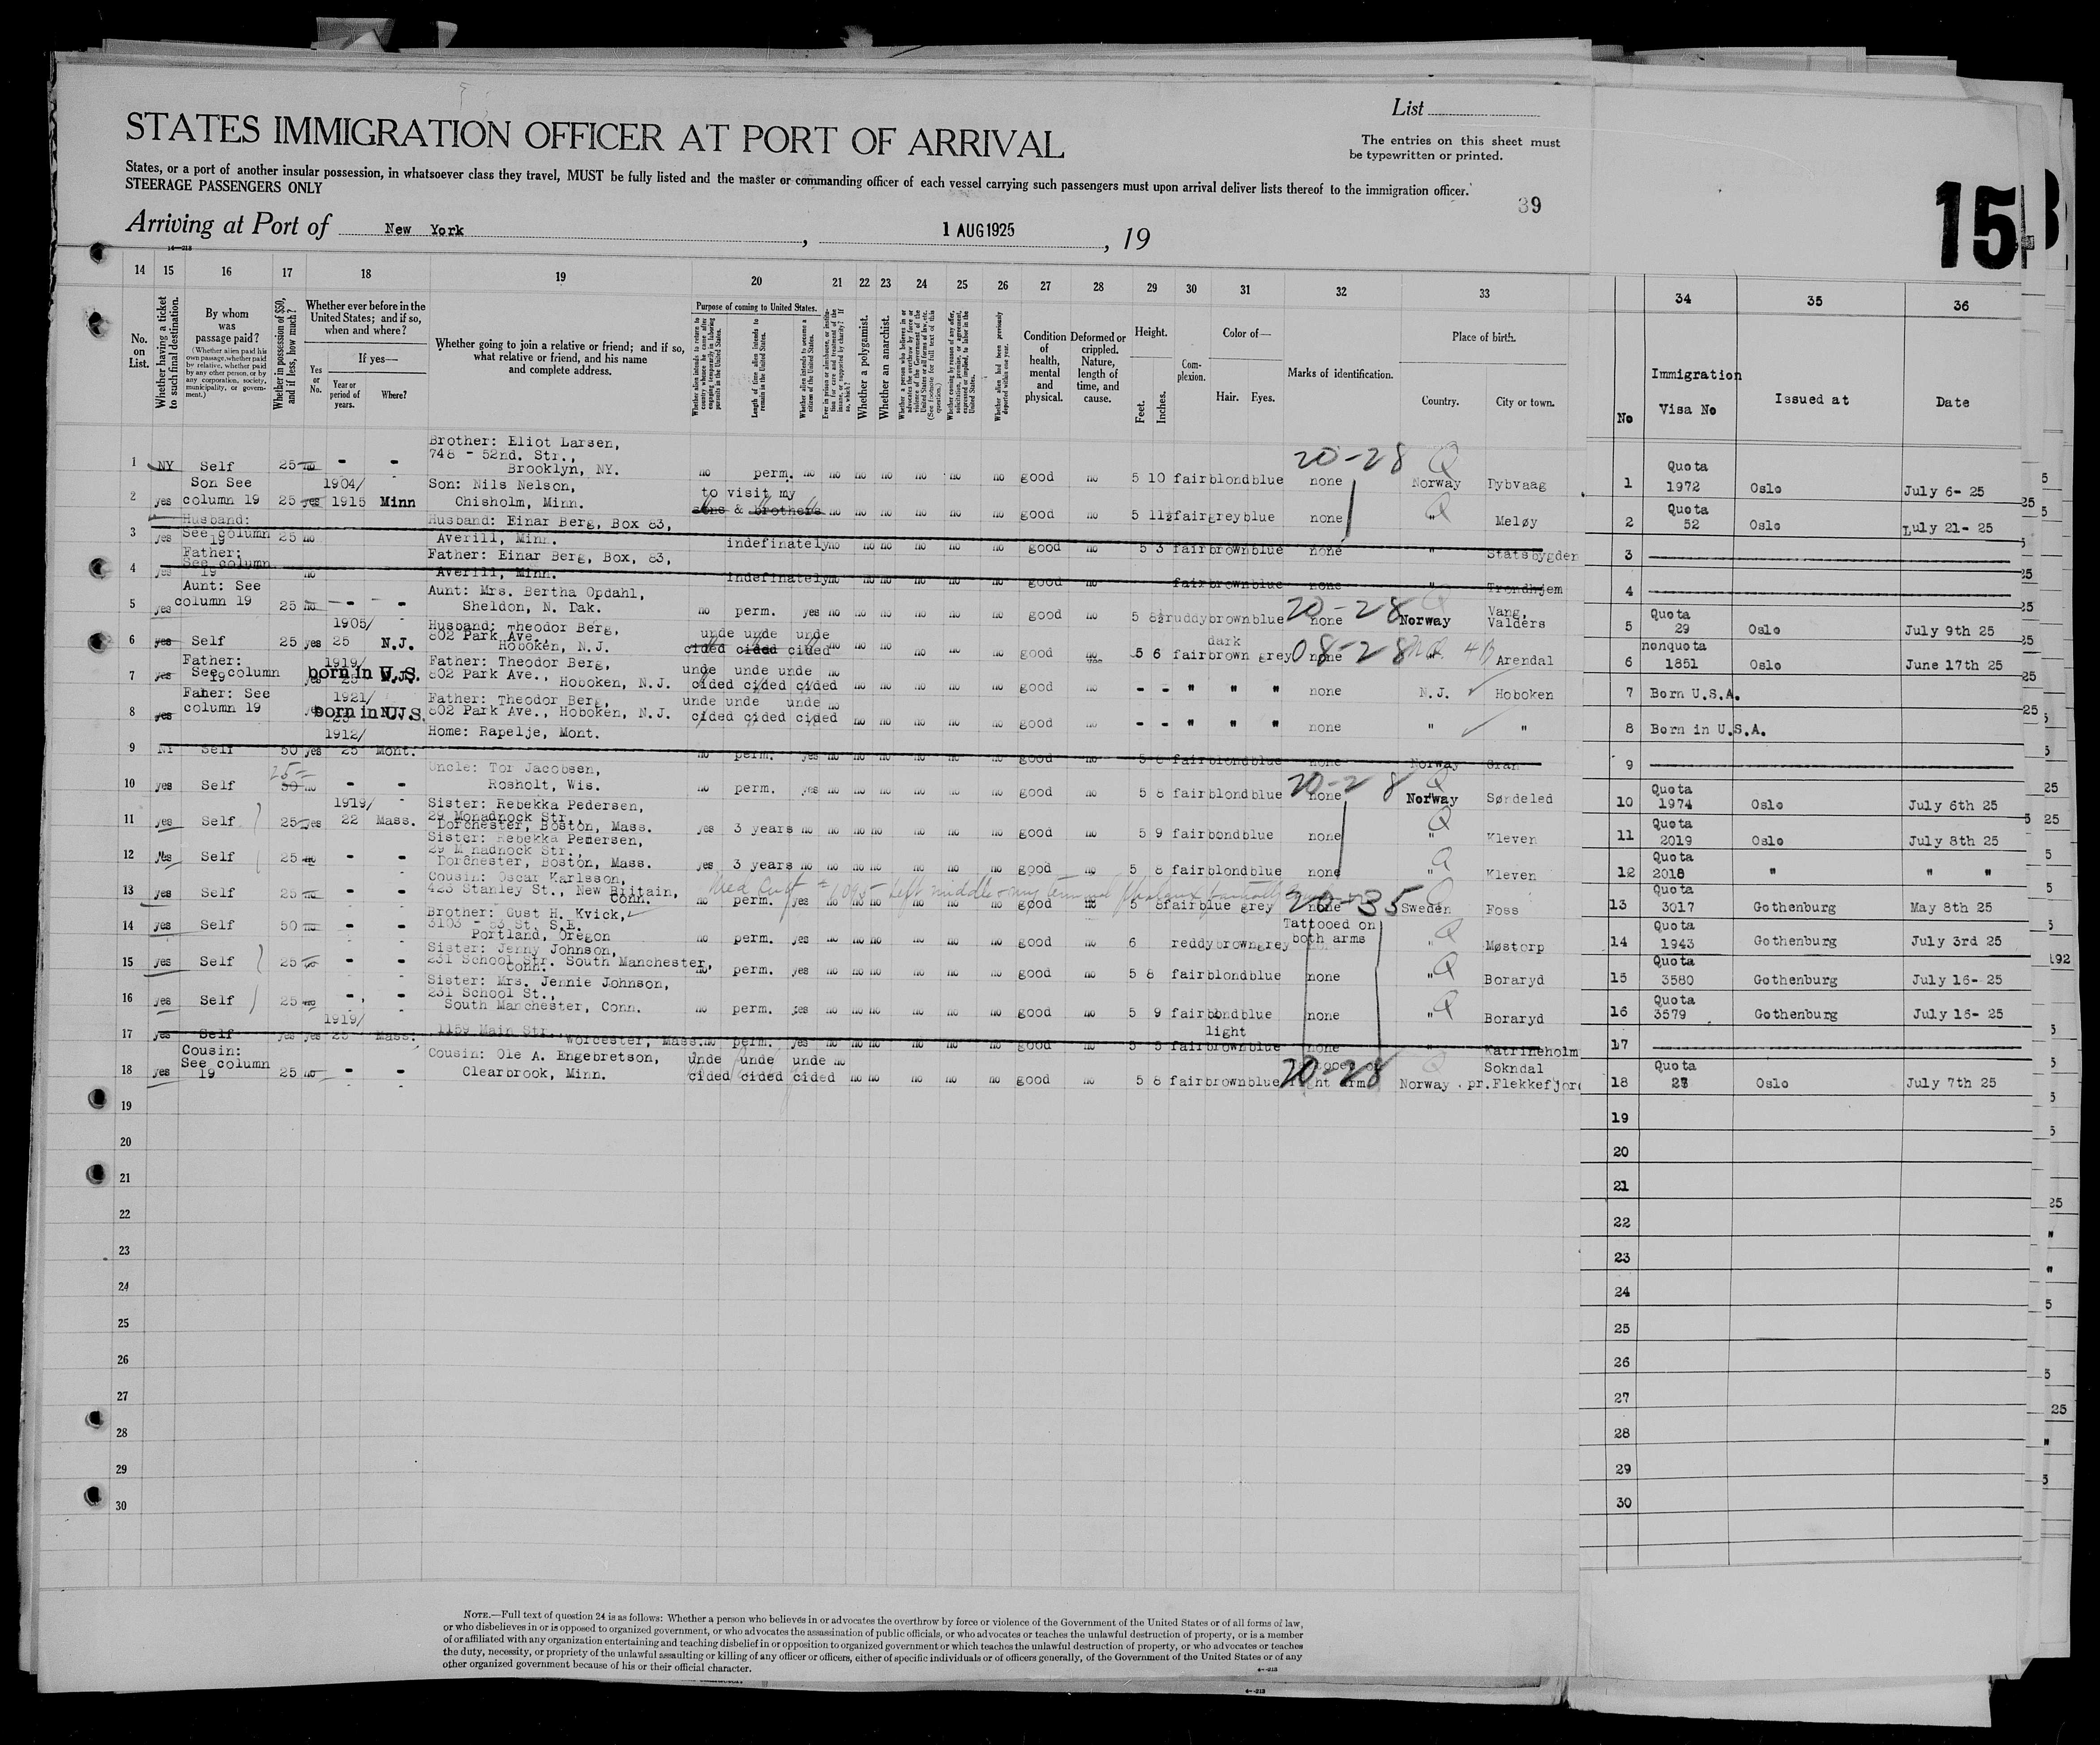 List
STATES IMMIGRATION OFFICER AT PORT OF ARRIVAL
The entries on this sheet must
be typewritten or printed.
States, or a port of another insular possession, in whatsoever class they travel, MUST be fully listed and the master or commanding officer of each vessel carrying such passengers must upon arrival deliver lists thereof to the immigration officer.
STEERAGE PASSENGERS ONLY
39
15
Arriving at Port of New York, 1 AUG 1925, 19
14 15 16 17 18 19 20 21 22 23 24 25 26 27 28 29 30 31 32 33 34 35 36
No. on List.
Whether having a ticket to such final destination.
By whom was passage paid?
(Whether alien paid his own passage, whether paid by relative, whether paid by any other person, or by any corporation, society, municipality, or government.)
Whether in possession of $50, and if less, how much?
Whether ever before in the United States; and if so, when and where?
Yes or No.
If yes—
Year or period of years.
Where?
Whether going to join a relative or friend; and if so, what relative or friend, and his name and complete address.
Purpose of coming to United States.
Whether alien intends to return to country whence he came after engaging temporarily in laboring pursuits in the United States.
Length of time alien intends to remain in the United States.
Whether alien intends to become a citizen of the United States.
Whether a polygamist.
Whether an anarchist.
Condition of health, mental and physical.
Deformed or crippled. Nature, length of time, and cause.
Height.
Feet. Inches.
Complexion.
Color of—
Hair. Eyes.
Marks of identification.
Place of birth.
Country. City or town.
No
Immigration Visa No
Issued at
Date
Brother: Eliot Larsen,
748 - 52nd. Str.,
Brooklyn, NY.
1 NY Self 25 no - - no perm. no no no no no no no good no 5 10 fair blond blue none 20-28 Q Norway Dybvaag 1 Quota 1972 Oslo July 6- 25
2 yes Son See column 19 25 yes 1904/ 1915 Minn Son: Nils Nelson,
Chisholm, Minn. to visit my sons & brothers no no no no no no good no 5 11½ fair grey blue none " Q Meløy 2 Quota 52 Oslo July 21- 25
3 yes Husband: See column 19 25 no Husband: Einar Berg, Box 83,
Averill, Minn. indefinately no no no no no no good no 5 3 fair brown blue none " Statsbygden 3
4 yes Father: See column 19 no Father: Einar Berg, Box, 83,
Averill, Minn. indefinately no no no no no no good no fair brown blue none " Trondhjem 4
5 yes Aunt: See column 19 25 no - - - Aunt: Mrs. Bertha Opdahl,
Sheldon, N. Dak. no perm. yes no no no no no no good no 5 8½ ruddy brown blue none 20-28 Q Norway Vang, Valders 5 Quota 29 Oslo July 9th 25
6 yes Self 25 yes 1905/ 25 N.J. Husband: Theodor Berg,
802 Park Ave.,
Hoboken, N.J. undecided undecided undecided no no no no no no good no 5 6 fair dark brown grey none 08-28 " Arendal 6 nonquota 1851 Oslo June 17th 25
7 yes Father: See column 19 yes 1919/ 25 N.J. born in U.S. Father: Theodor Berg,
802 Park Ave.,
Hoboken, N.J. undecided undecided undecided no no no no no no good no - - " " " none N.J. Hoboken 7 Born U.S.A.
8 yes Faher: See column 19 yes 1921/ born in U.S. Father: Theodor Berg,
802 Park Ave., Hoboken, N.J. undecided undecided undecided no no no no no no good no - - " " " none " " 8 Born in U.S.A.
9 NY Self 50 yes 1912/ 25 Mont. Home: Rapelje, Mont. no perm. yes no no no no no no good no 5 6 fair blond blue none Norway Gran 9
10 yes Self 25 50 no - - Uncle: Tor Jacobsen,
Rosholt, Wis. no perm. yes no no no no no no good no 5 8 fair blond blue none 20-28 Q Norway Søndeled 10 Quota 1974 Oslo July 6th 25
11 yes Self 25 yes 1919/ 22 Mass. Sister: Rebekka Pedersen,
29 Monadnock Str.,
Dorchester, Boston, Mass. yes 3 years no no no no no no no good no 5 9 fair bond blue none " Q Kleven 11 Quota 2019 Oslo July 8th 25
12 yes Self 25 no - - Sister: Rebekka Pedersen,
29 M nadnock Str.,
Dorchester, Boston, Mass. yes 3 years no no no no no no no good no 5 8 fair blond blue none " Q Kleven 12 Quota 2018 " " "
13 yes Self 25 no - - Cousin: Oscar Karlsson,
423 Stanley St., New Britain,
Conn. no perm. yes no no no no no no good no 5 8 fair blue grey none 20-35 Sweden Foss 13 Quota 3017 Gothenburg May 8th 25
14 yes Self 50 no - - Brother: Gust H. Kvick,
3103 - 63 St. S.E.
Portland, Oregon no perm. yes no no no no no no good no 6 reddy brown grey Tattooed on both arms " Q Møstorp 14 Quota 1943 Gothenburg July 3rd 25
15 yes Self 25 no - - Sister: Jenny Johnson,
231 School Str. South Manchester,
Conn. no perm. yes no no no no no no good no 5 8 fair blond blue none " Q Boraryd 15 Quota 3580 Gothenburg July 16- 25
16 yes Self 25 no - - Sister: Mrs. Jennie Johnson,
231 School St.,
South Manchester, Conn. no perm. yes no no no no no no good no 5 9 fair blond blue none " Q Boraryd 16 Quota 3579 Gothenburg July 16- 25
17 yes Self yes yes 1919/ 25 Mass. 1159 Main Str., Worcester, Mass. no perm. yes no no no no no no good no 5 5 fair light brown blue none " Katrineholm 17
18 yes Cousin: See column 19 25 no - - Cousin: Ole A. Engebretson,
Clearbrook, Minn. undecided undecided undecided no no no no no no good no 5 8 fair brown blue right arm 20-28 Norway Sokndal pr. Flekkefjord 18 Quota Oslo July 7th 25
19 19
20 20
21 21
22 22
23 23
24 24
25 25
26 26
27 27
28 28
29 29
30 30
NOTE.—Full text of question 24 is as follows: Whether a person who believes in or advocates the overthrow by force or violence of the Government of the United States or of all forms of law,
or who disbelieves in or is opposed to organized government, or who advocates the assassination of public officials, or who advocates or teaches the unlawful destruction of property, or is a member
of or affiliated with any organization entertaining and teaching disbelief in or opposition to organized government or which teaches the unlawful destruction of property, or who advocates or teaches
the duty, necessity, or propriety of the unlawful assaulting or killing of any officer or officers, either of specific individuals or of officers generally, of the Government of the United States or of any
other organized government because of his or their official character.